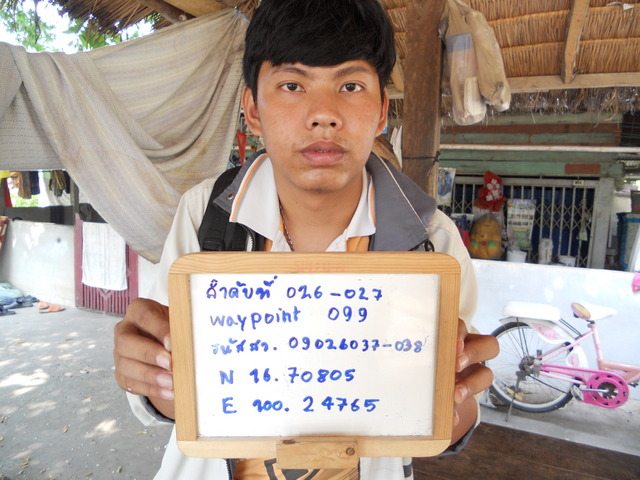 ลำดับที่ 026-027
waypoint 099
รหัสสว. 09026037-038
N 16.70805
E 100.24765